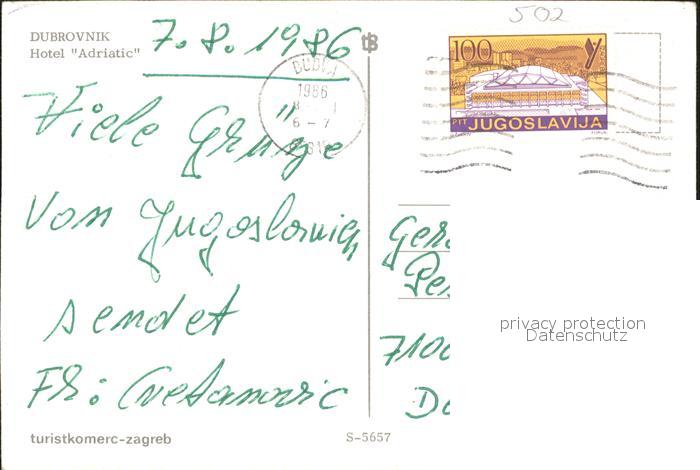 502
DUBROVNIK
Hotel "Adriatic"
7.8.1986
tB
1986
6 - 7
100
PTT JUGOSLAVIJA
Viele Grüße
Von Jugoslawien
sendet
Fr: Cvetanovic
Ger
Pe
7100
D
privacy protection
Datenschutz
turistkomerc-zagreb
S-5657